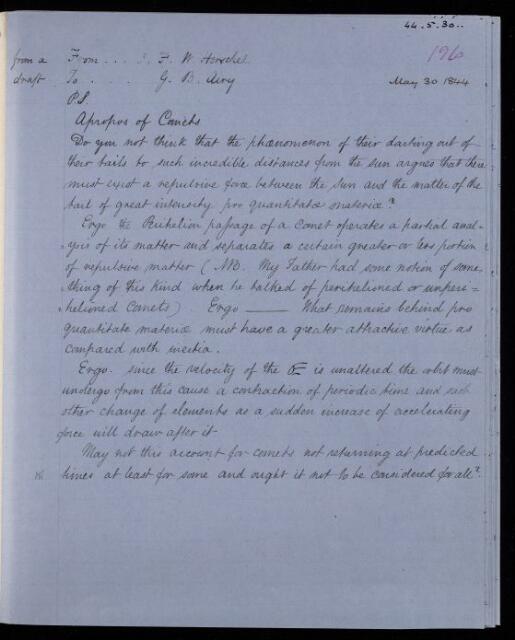 44.5.30..
from a From . . . J. F. W. Herschel 196
draft To . . . . G. B. Airy May 30 1844
P.S.
Apropos of Comets
Do you not think that the phœnomenon of their darting out of
their tails to such incredible distances from the sun argues that there
must exist a repulsive force between the sun and the matter of the
tail of great intensity pro quantitatæ materiæ?
Ergo the Perihelion passage of a Comet operates a partial anal-
-ysis of its matter and separates a certain greater or less portion
of repulsive matter (NB. My Father had some notion of some
thing of this kind when he talked of perihelioned or unperi=
-helioned Comets) Ergo —— What remains behind pro
quantitate materiæ must have a greater attractive virtue as
compared with inertia.
Ergo. since the velocity of the is unaltered the orbit must
undergo from this cause a contraction of periodic time and such
other change of elements as a sudden increase of accelerating
force will draw after it
May not this account for comets not returning at predicted
times at least for some and ought it not to be considered for all?